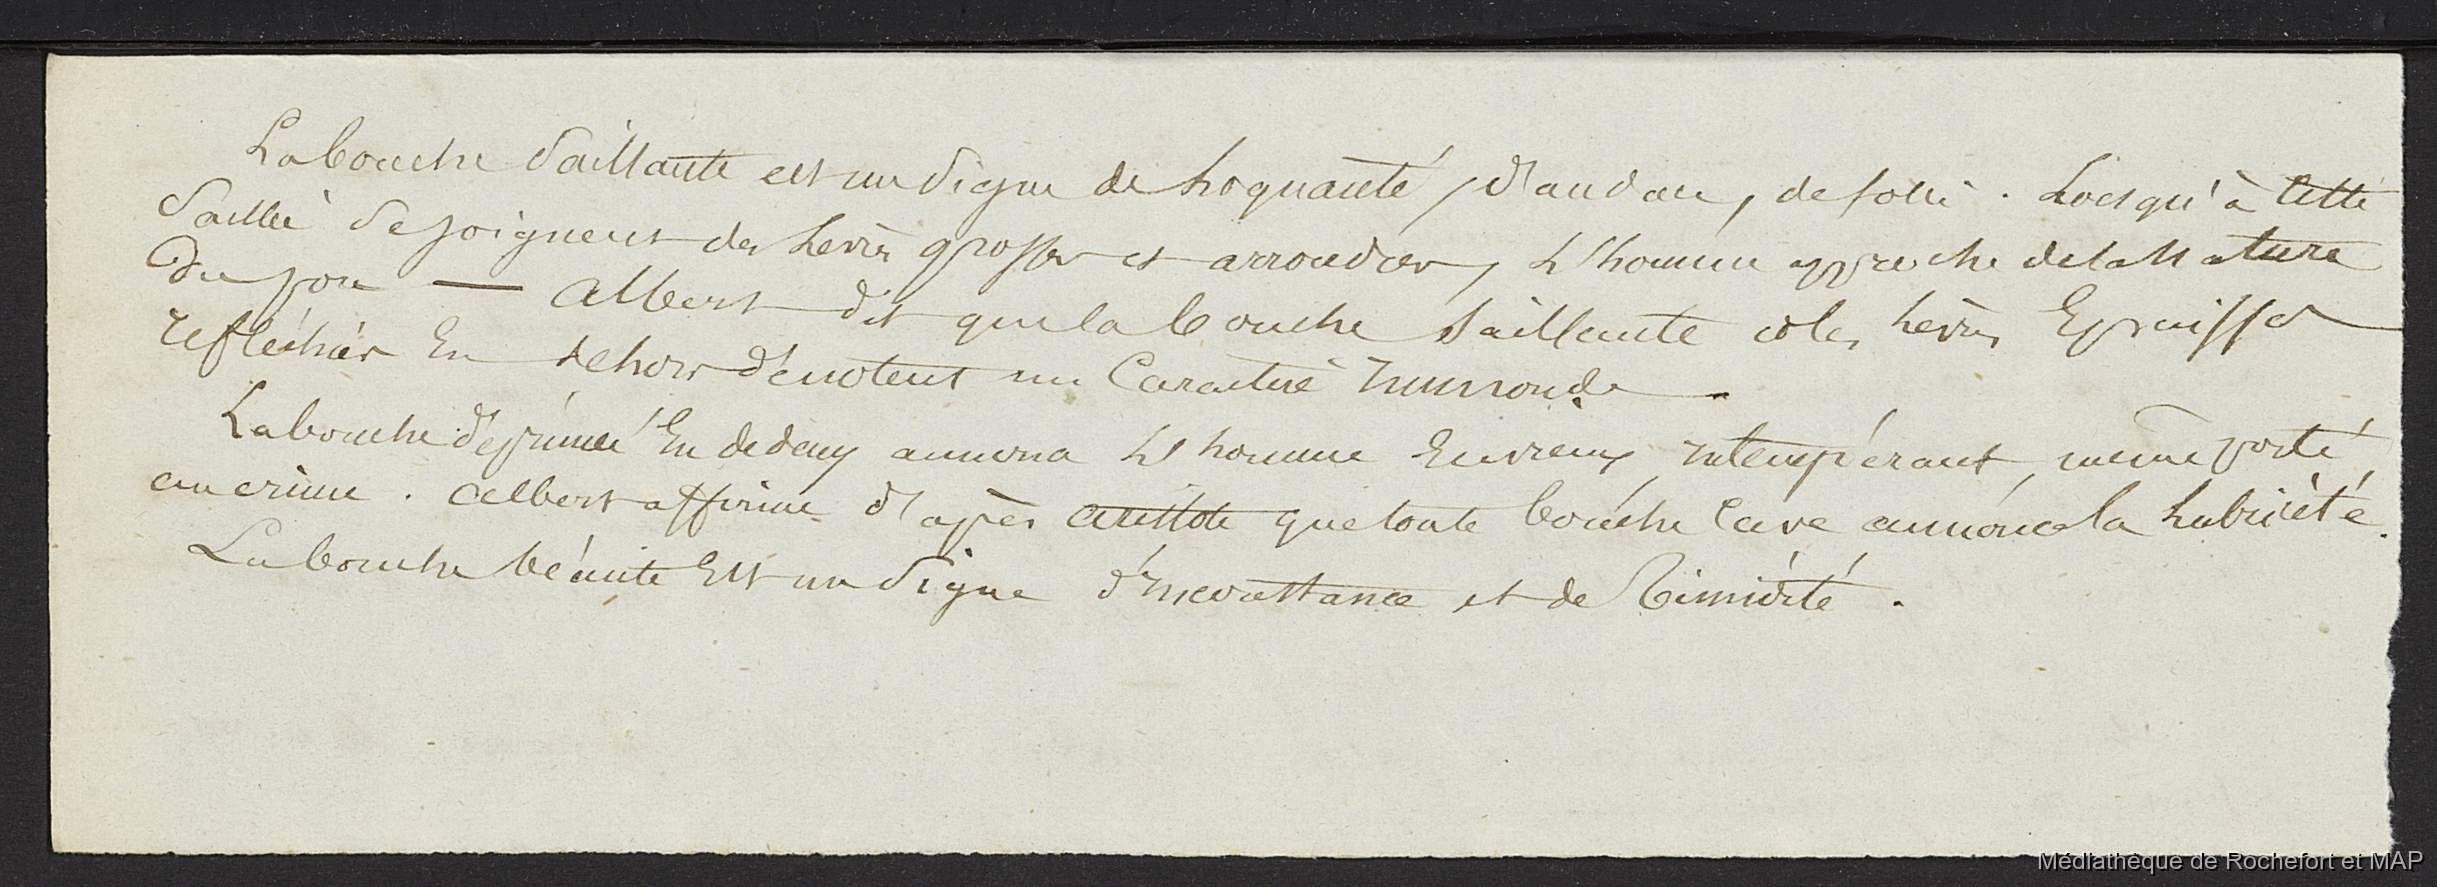 La bouche Saillante est un Signe de Loquanté, d'audace, de folie. Lorsqu'à Cette
Saillie Se joignent des Levres grosses et arrondies, L'homme approche de la Nature
Du porc — Albert dit que la bouche Saillante et les Levres Epaisses
refléchies En dehors dénotent un Caractere Immonde
La bouche déprimée En dedens annonce L'homme Envieux intempérant, même porté
au crime. Albert affirme d'après Aristote que toute bouche Cave annonce la Lubricité.
La bouche béante Est un Signe d'Inconstance et de Timidité.
Médiathèque de Rochefort et MAP